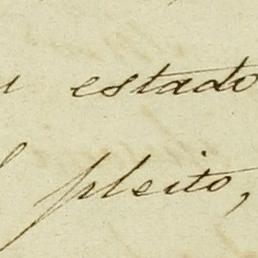 estado
pleito,